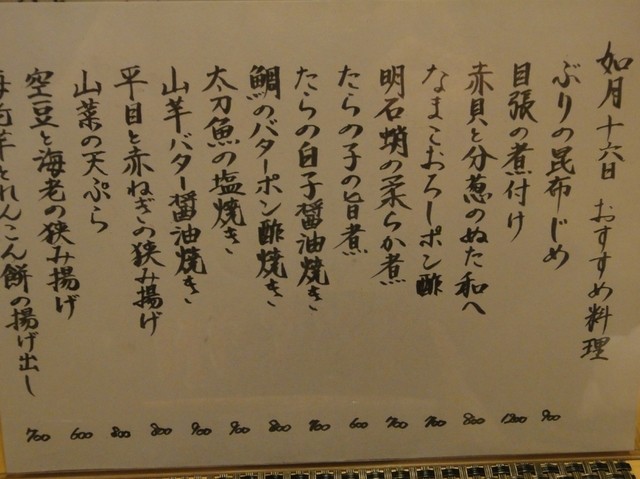 如月十六日 おすすめ料理
ぶりの昆布じめ 900
目張の煮付け 1200
赤貝と分葱のぬた和へ 800
なまこおろしポン酢 700
明石蛸の柔らか煮 700
たらの子の旨煮 600
たらの白子醤油焼き 700
鯛のバターポン酢焼き 800
太刀魚の塩焼き 900
山芋バター醤油焼き 900
平目と赤ねぎの狭み揚げ 800
山菜の天ぷら 800
空豆と海老の狭み揚げ 600
海老芋とれんこん餅の揚げ出し 700